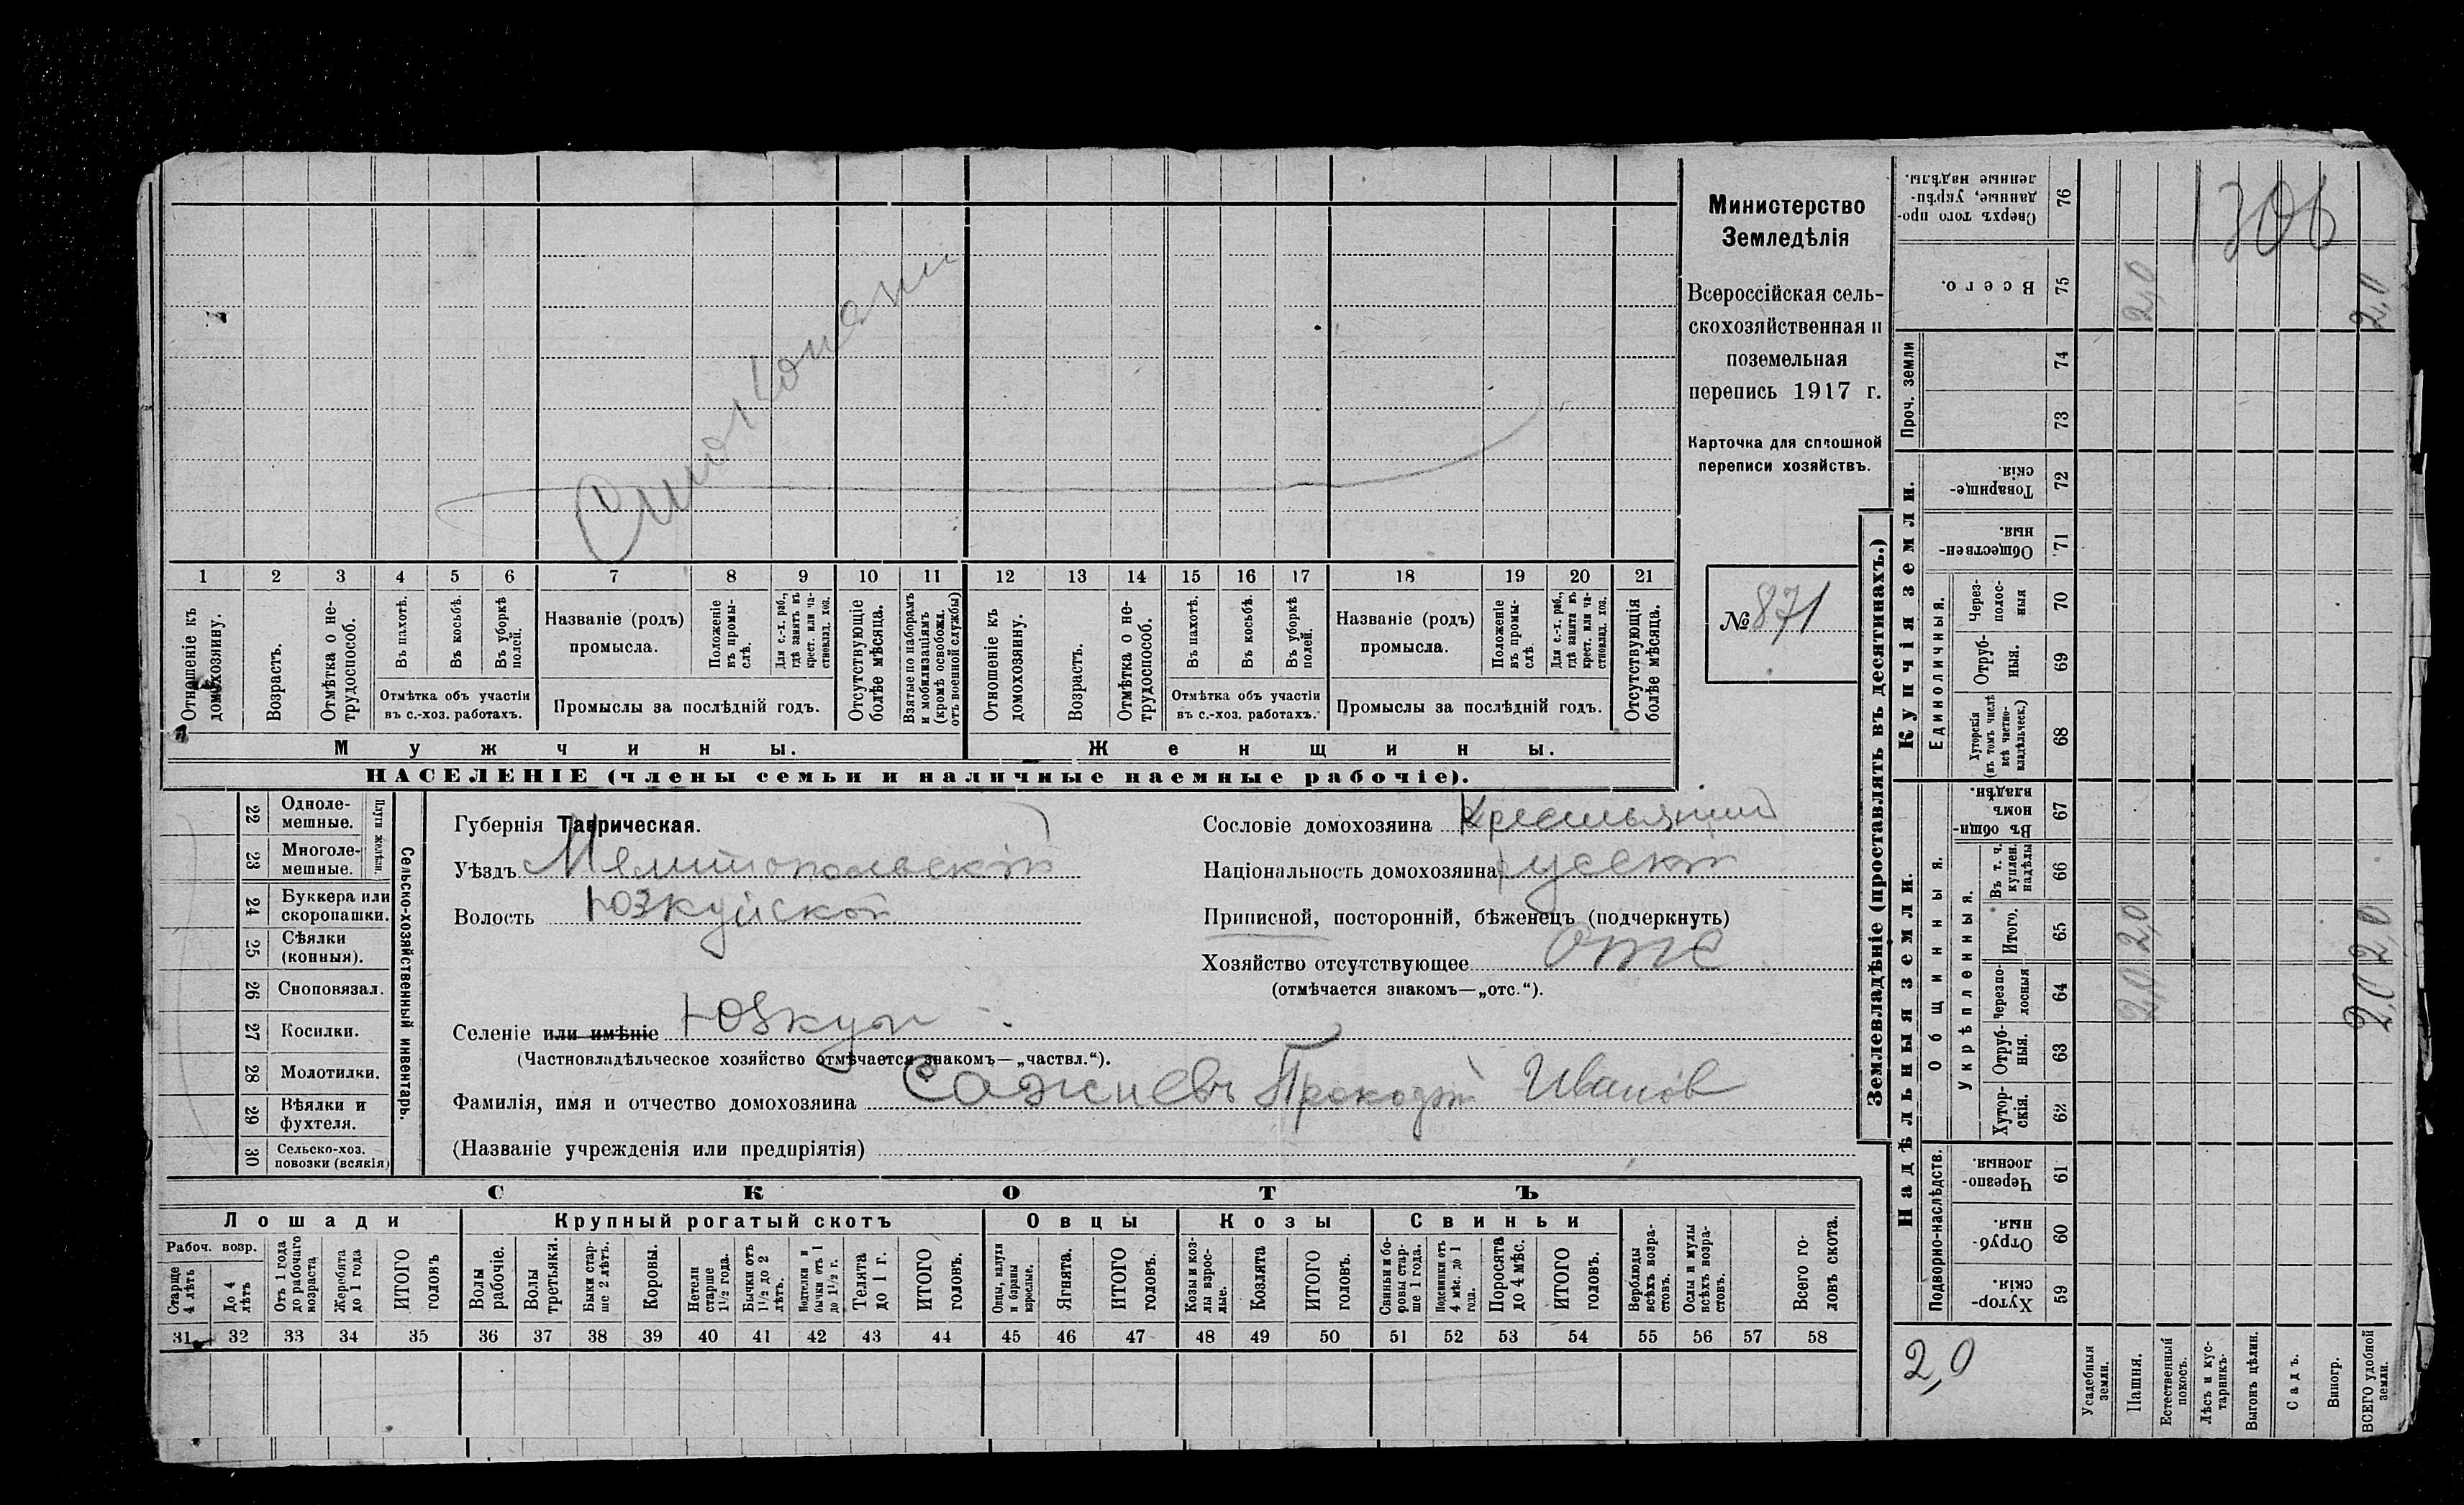 1 2 3 4 5 6 7 8 9 10 11 12 13 14 15 16 17 18 19 20 21
Отношеніе къ домохозяину.
Возрастъ.
Отмѣтка о не-
трудоспособ.
Въ пахотѣ.
Въ косьбѣ.
Въ уборкѣ
полей.
Отмѣтка объ участіи
въ с.-хоз. работахъ.
Названіе (родъ)
промысла.
Положеніе
въ промы-
слѣ.
Для с.-х. раб.,
гдѣ занятъ въ
крест. или ча-
стновлад. хоз.
Промыслы за послѣдній годъ.
Отсутствующіе
болѣе мѣсяца.
Взятые по наборамъ
и мобилизаціямъ
(кромѣ освобожд.
отъ военной службы)
Отношеніе къ
домохозяину.
Возрастъ.
Отмѣтка о не-
трудоспособ.
Въ пахотѣ.
Въ косьбѣ.
Въ уборкѣ
полей.
Отмѣтка объ участіи
въ с.-хоз. работахъ.
Названіе (родъ)
промысла.
Положеніе
въ промы-
слѣ.
Для с.-х. раб.,
гдѣ занята въ
крест. или ча-
стновлад. хоз.
Промыслы за послѣдній годъ.
Отсутствующія
болѣе мѣсяца.
Мужчины.
Женщины.
НАСЕЛЕНІЕ (члены семьи и наличные наемные рабочіе).
Министерство
Земледѣлія
Всероссійская сель-
скохозяйственная и
поземельная
перепись 1917 г.
Карточка для сплошной
переписи хозяйствъ.
№ 871
22 Одноле-
мешные.
23 Многоле-
мешные.
Плуги желѣзн.
24 Буккера или
скоропашки.
25 Сѣялки
(конныя).
26 Сноповязал.
27 Косилки.
28 Молотилки.
29 Вѣялки и
фухтеля.
30 Сельско-хоз.
повозки (всякія)
Сельско-хозяйственный инвентарь.
Губернія Таврическая.
Уѣздъ Мелитопольскій
Волость Юзкуйской
Селеніе или имѣніе Юзкуи
(Частновладѣльческое хозяйство отмѣчается знакомъ—„частвл.“).
Фамилія, имя и отчество домохозяина Сажневъ Прокофій Иванов
(Названіе учрежденія или предпріятія)
Сословіе домохозяина Крестьянин
Національность домохозяина русскій
Приписной, посторонній, бѣженецъ (подчеркнуть)
Хозяйство отсутствующее отс
(отмѣчается знакомъ—„отс.“).
СКОТЪ
Лошади
Рабоч. возр.
Старше
4 лѣтъ
До 4
лѣтъ
Отъ 1 года
до рабочаго
возраста
Жеребята
до 1 года
ИТОГО
головъ
Крупный рогатый скотъ
Волы
рабочіе.
Волы
третьяки.
Быки стар-
ше 2 лѣтъ.
Коровы.
Нетели
старше
1½ года.
Бычки отъ
1½ до 2
лѣтъ.
Подтелки и
бычки отъ 1
до 1½ г.
Телята
до 1 г.
ИТОГО
головъ.
Овцы
Овцы, валухи
и бараны
взрослые.
Ягнята.
ИТОГО
головъ.
Козы
Козы и коз-
лы взрос-
лые.
Козлята
ИТОГО
головъ.
Свиньи
Свиньи и бо-
ровы стар-
ше 1 года.
Подсвинки отъ
4 мѣс. до 1
года.
Поросята
до 4 мѣс.
ИТОГО
головъ.
Верблюды
всѣхъ возра-
стовъ.
Ослы и мулы
всѣхъ возра-
стовъ.
Всего го-
ловъ скота.
31 32 33 34 35 36 37 38 39 40 41 42 43 44 45 46 47 48 49 50 51 52 53 54 55 56 57 58
Землевладѣніе (проставлять въ десятинахъ.)
Сверхъ того про-
данные, укрѣп-
ленные надѣлы.
76
1306
Всего.
75
2,0
2,0
Проч. земли
74
73
Купчія земли.
Товарище-
скія.
72
Обществен-
ныя.
71
Единоличныя.
Через-
полос-
ныя
70
Отруб-
ныя.
69
Хуторскія
(въ томъ числѣ
всѣ частно-
владѣльческ.)
68
Надѣльныя земли.
Общинныя.
Въ общин-
номъ
владѣн.
67
Укрѣпленныя.
Въ т. ч.
куплен.
надѣлы
66
Итого.
65
2,0
2,0
Черезпо-
лосныя
64
2,0
2,0
Отруб-
ныя.
63
Хутор-
скія.
62
Подворно-наслѣдств.
Черезпо-
лосныя.
61
Отруб-
ныя.
60
Хутор-
скія.
59
2,0
Усадебныя
земли.
Пашня.
Естественный
покосъ.
Лѣсъ и кус-
тарникъ.
Выгонъ цѣлин.
Садъ.
Виногр.
ВСЕГО удобной
земли.